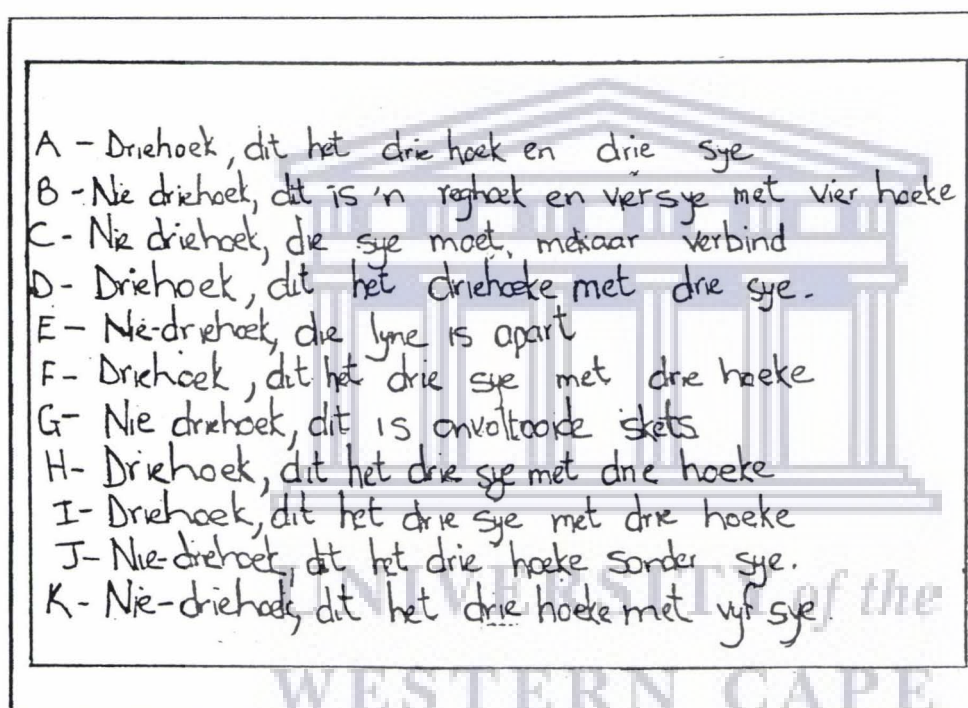 A - Driehoek, dit het drie hoek en drie sye
B - Nie driehoek, dit is 'n reghoek en viersye met vier hoeke
C - Nie driehoek, die sye moet mekaar verbind
D - Driehoek, dit het driehoeke met drie sye.
E - Nie-driehoek, die lyne is apart
F - Driehoek, dit het drie sye met drie hoeke
G - Nie driehoek, dit is onvoltooide skets
H - Driehoek, dit het drie sye met drie hoeke
I - Driehoek, dit het drie sye met drie hoeke
J - Nie-driehoek, dit het drie hoeke sonder sye.
K - Nie-driehoek, dit het drie hoeke met vyf sye.
UNIVERSITY of the
WESTERN CAPE